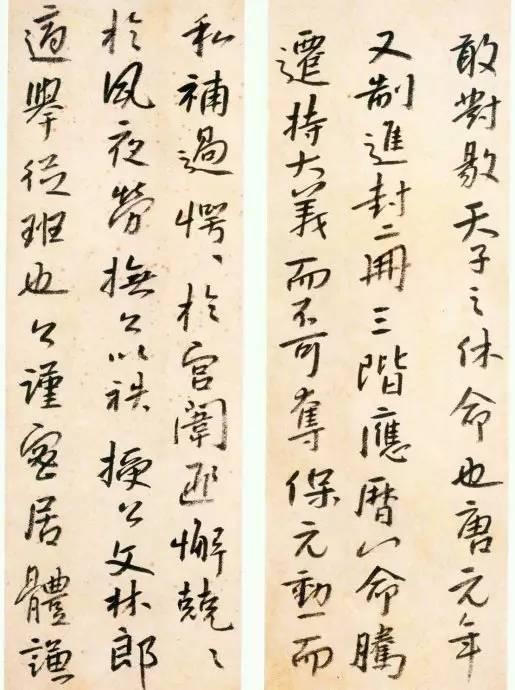 敢對敭天子之休命也唐元年
又制進封二冊三階應曆以命騰
遷持大義而不可奪保元勳一而
私補過愕、於宮闈匪懈兢〻
於夙夜勞撫公以袟授公文林郎
適舉從班也公謹密居體謙